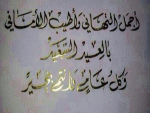 أجمل التهاني وأطيب الأماني
بالعيد السعيد
وكل عام وأنتم بخير